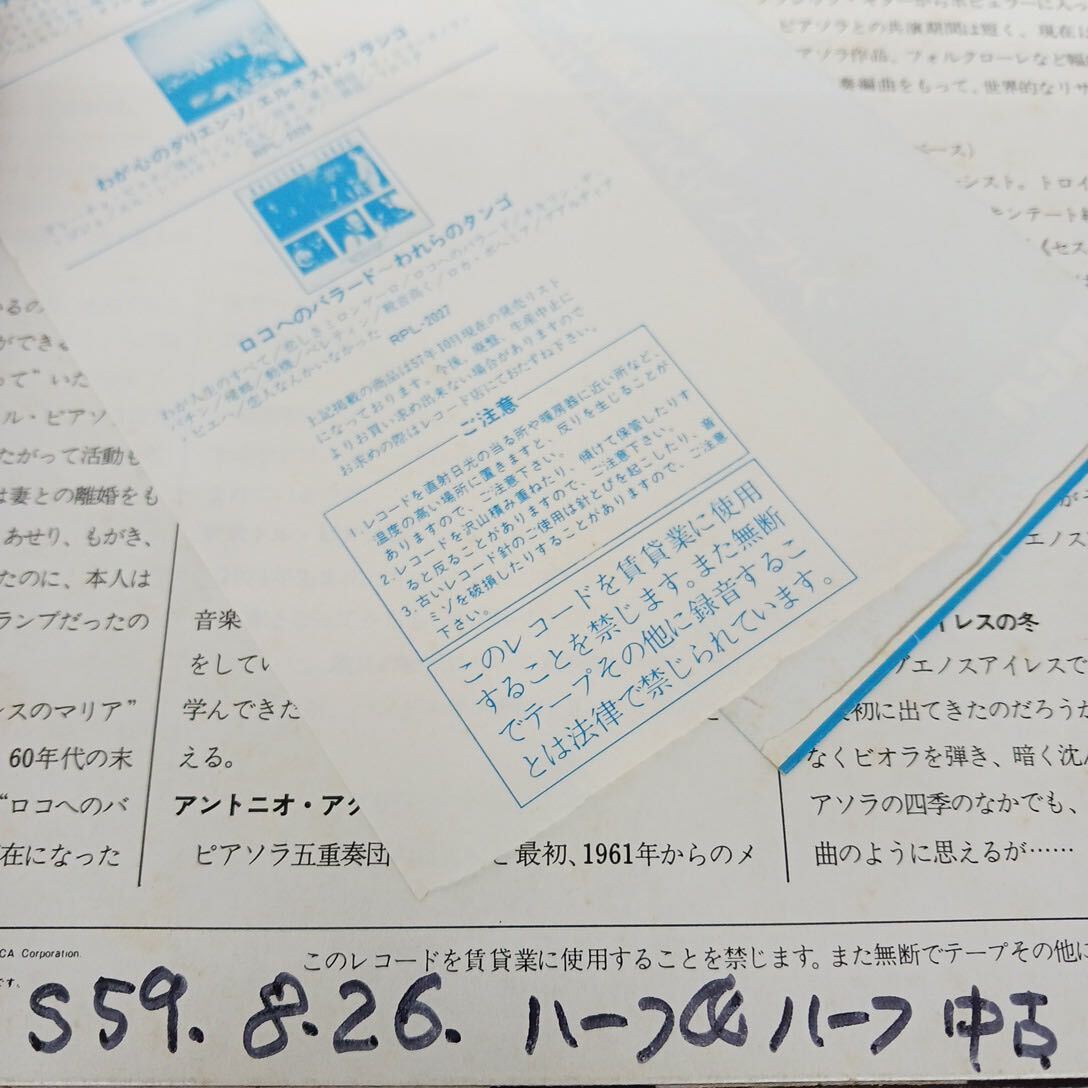 わが心のダリエンソ/エルネスト・フランコ
ロコへのバラード〜われらのタンゴ
RPL-2027
上記掲載の商品は57年10月現在の発売リスト
になっております。今後、廃盤、生産中止に
よりお買い求め出来ない場合がありますので
お求めの際はレコード店にておたずね下さい。
ご注意
1. レコードを直射日光の当る所や暖房器に近い所など、
温度の高い場所に置きますと、反りを生じることが
ありますので、ご注意下さい。
2. レコードを沢山積み重ねたり、傾けて保管したりす
ると反ることがありますので、ご注意下さい。
3. 古いレコード針のご使用は針とびを起こしたり、音
ミゾを破損したりすることがありますので、ご注意
下さい。
このレコードを賃貸業に使用
することを禁じます。また無断
でテープその他に録音するこ
とは法律で禁じられています。
ピアソラとの共演期間は短く、現在は
アソラ作品、フォルクローレなど幅
奏編曲をもって、世界的なリサ
ース)
シスト。トロイ
センテート
《セス
いるの
ができ
って"いた
ル・ピアソ
たがって活動も
は妻との離婚をも
あせり、もがき、
たのに、本人は
ランブだったの
スのマリア"
60年代の末
"ロコへのバ
在になった
音楽
をしてい
学んできた
える。
アントニオ・アグ
ピアソラ五重奏団
最初、1961年からのメ
エノス
イレスの冬
ブエノスアイレスで
最初に出てきたのだろうか
なくビオラを弾き、暗く沈ん
アソラの四季のなかでも、
曲のように思えるが……
CA Corporation.
です。
このレコードを賃貸業に使用することを禁じます。また無断でテープその他に
S59. 8.26. ハーフ&ハーフ 中古